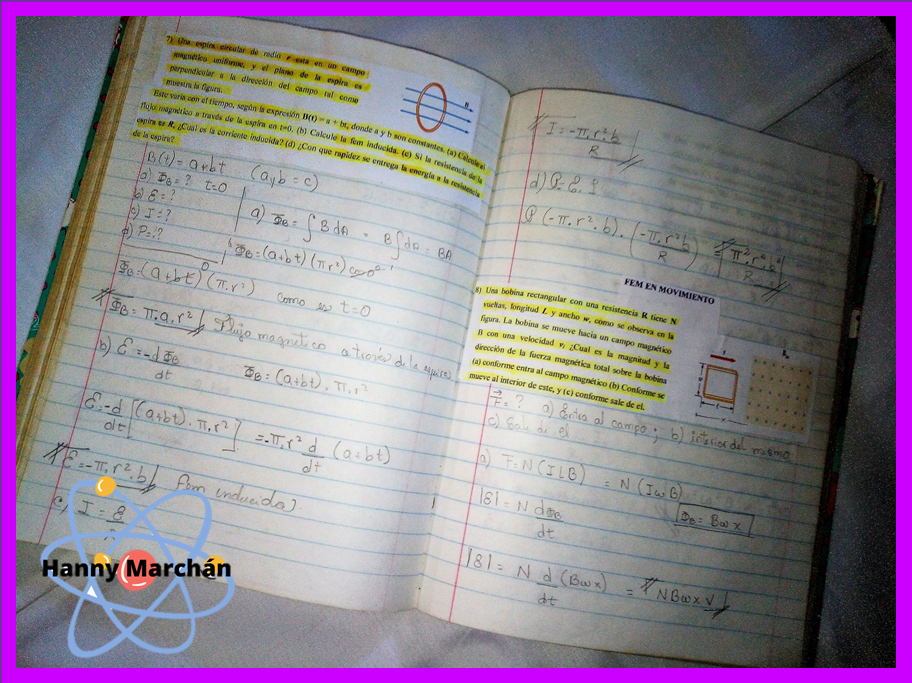 7) Una espira circular de radio r esta en un campo
magnético uniforme, y el plano de la espira es
perpendicular a la dirección del campo tal como
muestra la figura.
Este varia con el tiempo, según la expresión B(t) = a + bt, donde a y b son constantes. (a) Calcule el
flujo magnético a través de la espira en t=0. (b) Calcule la fem inducida. (c) Si la resistencia de la
espira es R, ¿Cuál es la corriente inducida? (d) ¿Con que rapidez se entrega la energía a la resistencia
de la espira?
B
B(t) = a+bt (a,b = c)
a) ΦB = ? t=0
b) ε = ?
c) I = ?
d) P = ?
a) ΦB = ∫ B dA = B ∫ dA = BA
ΦB = (a+bt) (π r²) cos 0° 1
ΦB = (a+bt)⁰ (π, r²) como es t=0
ΦB = π.a.r² Flujo magnético a través de la espira
b) ε = -d ΦB / dt ΦB = (a+bt) . π, r²
ε = -d/dt [(a+bt) . π, r²] = -π, r² d/dt (a+bt)
ε = -π, r². b fem inducida
c) I = ε
Hanny Marchán
I = -π, r². b / R
d) P = ε. I
P (-π, r². b) . (-π, r² b / R) = π², r⁴, b² / R
FEM EN MOVIMIENTO
8) Una bobina rectangular con una resistencia R tiene N
vueltas, longitud L y ancho w, como se observa en la
figura. La bobina se mueve hacia un campo magnético
B con una velocidad v, ¿Cual es la magnitud y la
dirección de la fuerza magnética total sobre la bobina
(a) conforme entra al campo magnético (b) Conforme se
mueve al interior de este, y (c) conforme sale de el.
F = ? a) Entra al campo ; b) interior del mismo
c) Sale de él
a) F = N (I L B) = N (I w B)
|ε| = N d ΦB / dt ΦB = B w x
|ε| = N d/dt (B w x) = N B w x v